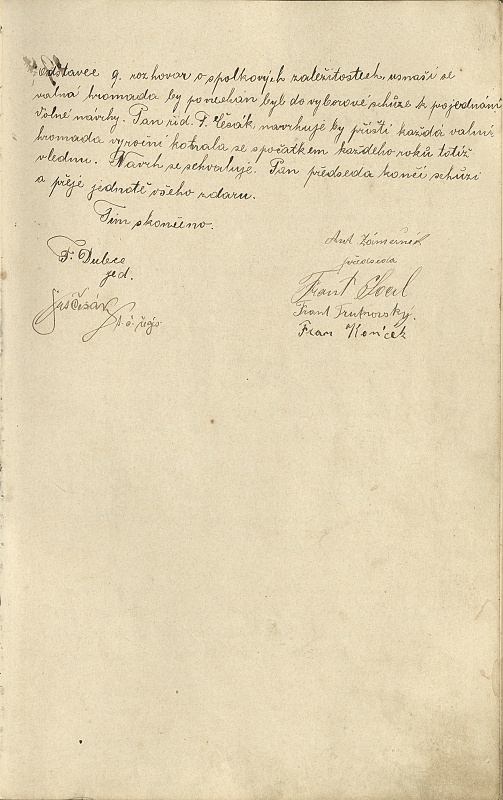 Odstavec 9. rozhovor o spolkových záležitostech, usnaší se
valná hromada by ponechán byl do výborové schůze k pojednání
volné návrhy. Pan řid. F. Česák, navrhuje by příští každá valná
hromada výroční konala se spočátkem každého roků totiž
v lednu. Návrh se schvaluje. Pan předseda končí schůzi
a přeje jednotě všeho zdaru.
Tím skončeno.
Ant Zámečník
předseda
F. Dubec
jed.
Frant
Jos Česák
Frant Trutnovský.
Fran Koníček